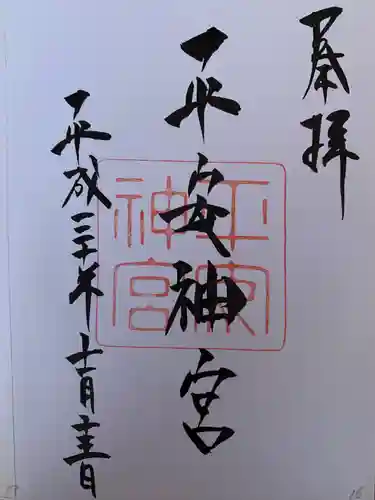 奉拝
平安神宮
平安神宮
平成三十年十一月二十三日